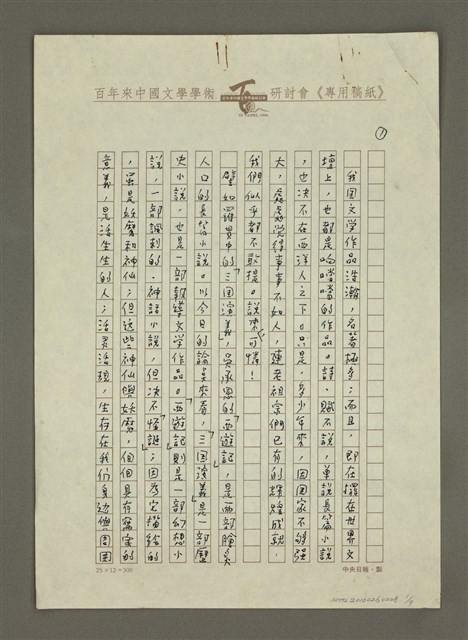 百年來中國文學學術研討會《專用稿紙》
①
我國文學作品浩瀚,名著極多;而且,即在擺在世界文
壇上,也都是响噹噹的作品。詩、賦不說,單說長篇小說
,也决不在西洋人之下。只是,多少年來,因國家不够强
大,處處覺得事事不如人,連老祖宗們已有的輝煌成就,
我們似乎都不敢提。說來可憐!
譬如羅貫中的「三国演義」,吳承恩的「西遊記」,是兩部膾炙
人口的長篇小說。以今日的論點來看,「三国演義」是一部歷
史小說,也是一部報導文學作品。「西遊記」則是一部幻想小
說,一部諷刺的、神話小說,但决不「怪誕」;因為它描绘的
,虽是妖魔和神仙;但这些神仙與妖魔,個個具有寓言的
意義,是活生生的人;活灵活現,生存在我們身边與周圍
25×12=300
中央日報·製